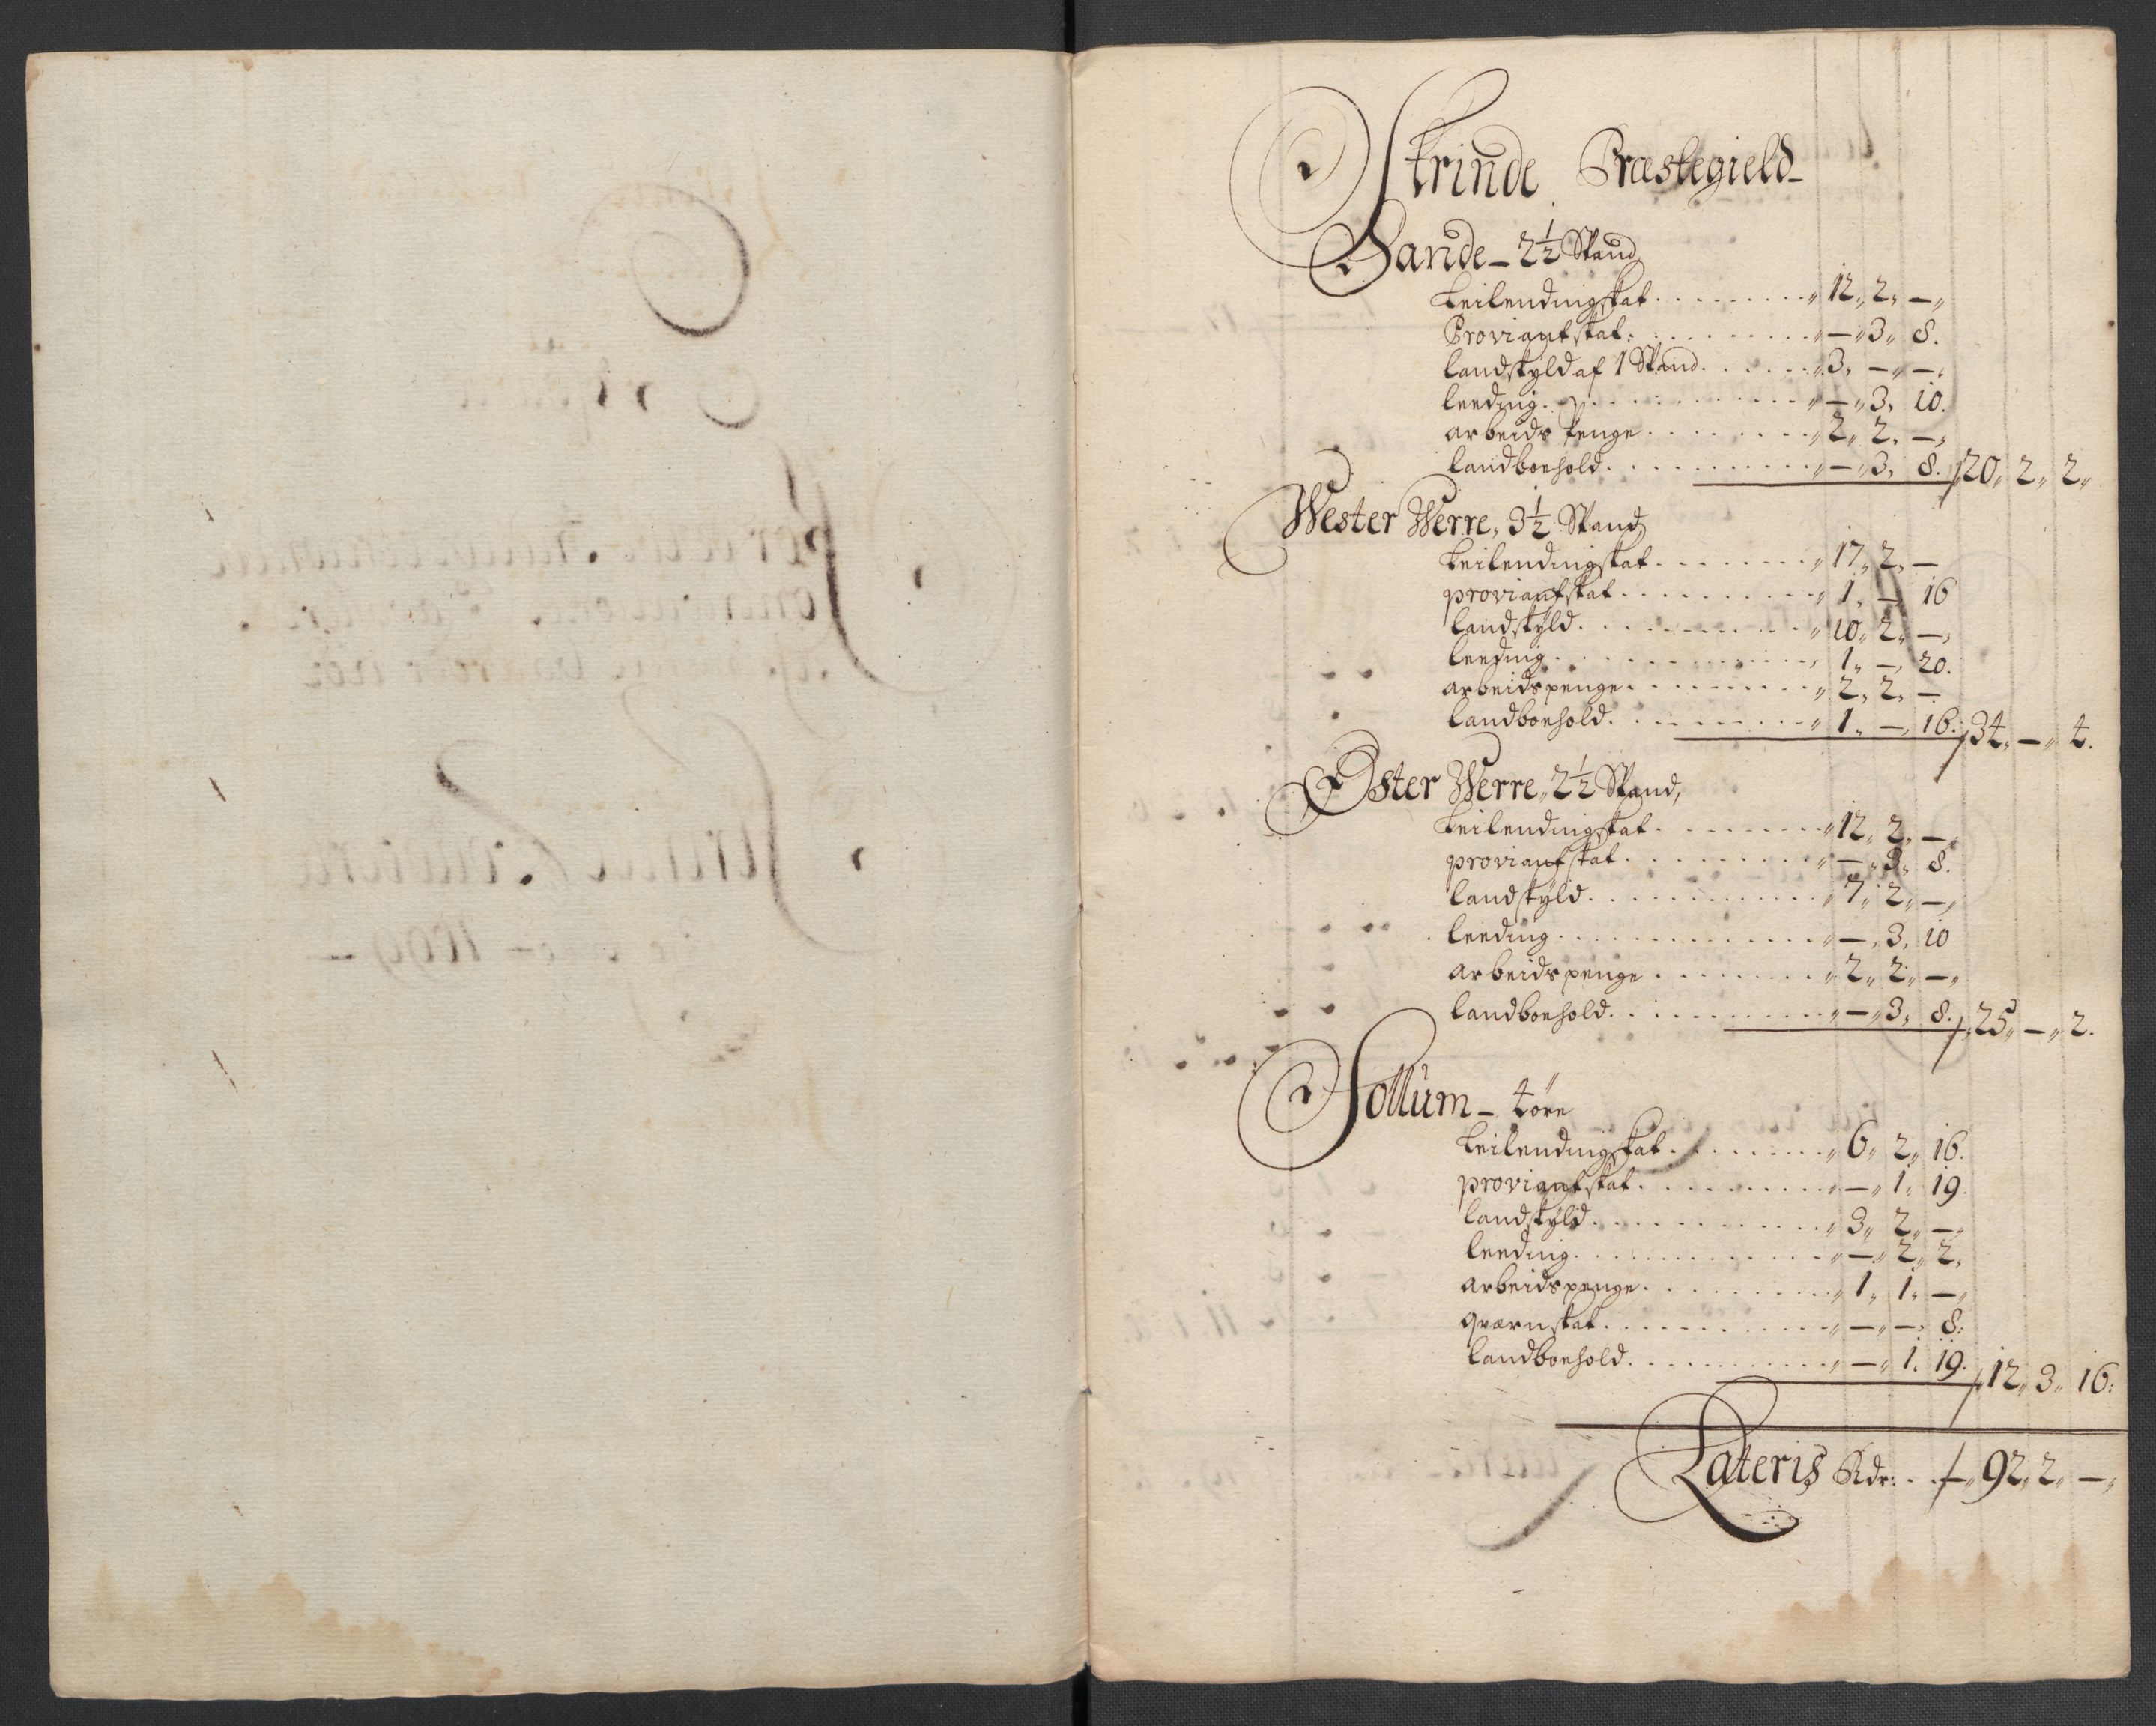 Strinde Præstegield
Sande 2½ Spand
Leilendingskat . . . 12 2 —
Proviantskat . . . — 3 8.
landskyld af 1 Spand . . . 3 — —
leeding . . . — 3 10.
arbeids penge . . . 2 2 —
landboehold . . . — 3 8. 20 2 2
Wester Werre, 3½ Spand
Leilendingskat . . . 17 2 —
proviantskat . . . 1 — 16
landskyld . . . 10 2 —
leeding . . . 1 — 20.
arbeidspenge . . . 2 2 —
landboehold . . . 1 — 16. 34 — 4.
Øster Werre, 2½ Spand,
Leilendingskat . . . 12 2 —
proviantskat . . . — 3 8.
landskyld . . . 7 2 —
leeding . . . — 3 10
arbeidspenge . . . 2 2 —
landboehold . . . — 3 8. 25 — 2.
Sollum — 4 öre
Leilendingskat . . . 6 2 16.
proviantskat . . . — 1 19.
landskyld . . . 3 2 —
leeding . . . — 2 2.
arbeidspenge . . . 1 1 —
qværnskat . . . — — 8:
landboehold . . . — 1 19. 12 3 16:
Lateris Rdr: . . 92 2 —